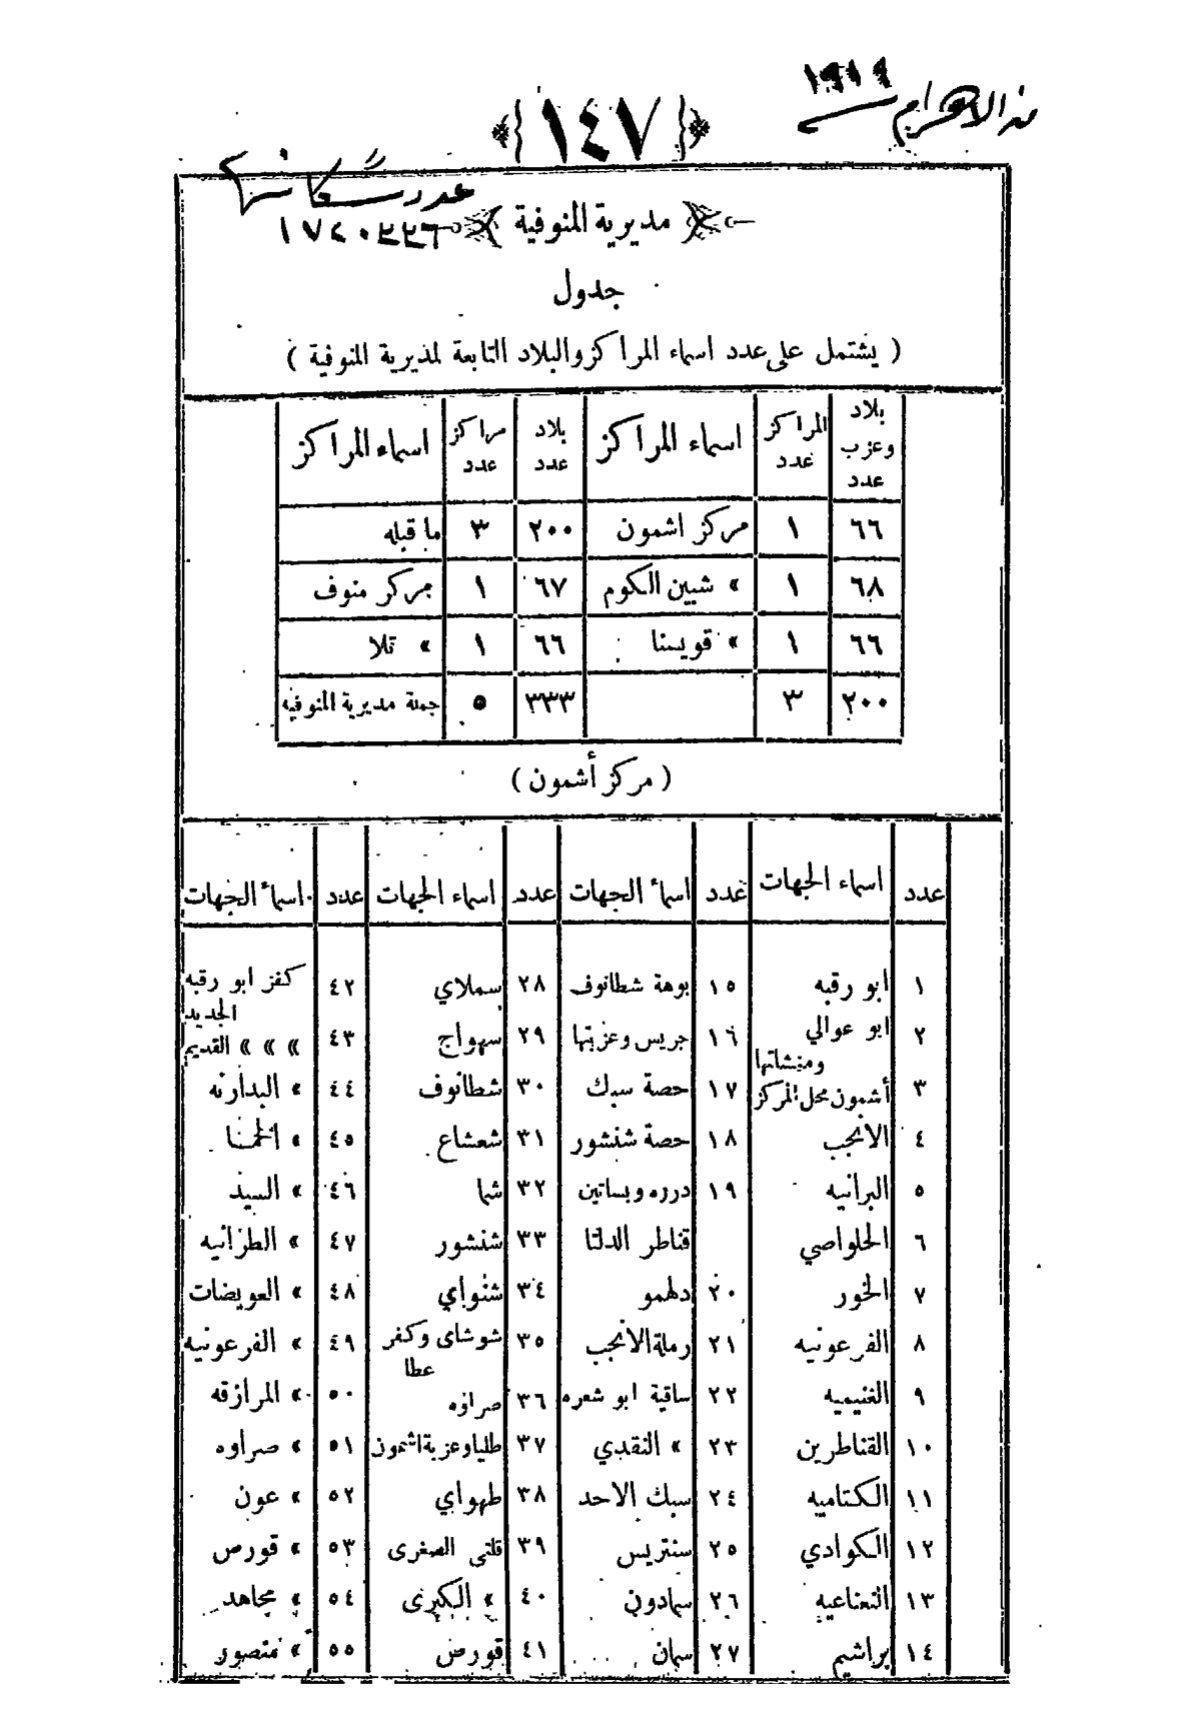 من الاهرام ١٩١٩
﴿ ١٤٧ ﴾
عدد سكانها
مديرية المنوفية
جدول
( يشتمل على عدد اسماء المراكز والبلاد التابعة لمديرية المنوفية )
بلاد وعزب عدد | المراكز عدد | اسماء المراكز | بلاد عدد | مراكز عدد | اسماء المراكز
٦٦ | ١ | مركز اشمون | ٢٠٠ | ٣ | ما قبله
٦٨ | ١ | » شبين الكوم | ٦٧ | ١ | مركز منوف
٦٦ | ١ | » قويسنا | ٦٦ | ١ | » تلا
٢٠٠ | ٣ | | ٣٣٣ | ٥ | جملة مديرية المنوفية
( مركز أشمون )
عدد | اسماء الجهات | عدد | اسماء الجهات | عدد | اسماء الجهات | عدد | اسماء الجهات
١ | ابو رقبه | ١٥ | بوهة شطانوف | ٢٨ | سملاي | ٤٢ | كفر ابو رقبه الجديد
٢ | ابو عوالي ومنشاتها | ١٦ | جريس وعزبتها | ٢٩ | سهواج | ٤٣ | » » » القديم
٣ | أشمون محل المركز | ١٧ | حصة سبك | ٣٠ | شطانوف | ٤٤ | » البدارنه
٤ | الانجب | ١٨ | حصة شنشور | ٣١ | شعشاع | ٤٥ | »
٥ | البرانيه | ١٩ | دروه وبساتين | ٣٢ | شما | ٤٦ | » السيد
٦ | الحلواصي | | قناطر الدلتا | ٣٣ | شنشور | ٤٧ | » الطرانيه
٧ | الخور | ٢٠ | دلهمو | ٣٤ | شنواي | ٤٨ | » العويضات
٨ | الفرعونيه | ٢١ | رملة الانجب | ٣٥ | شوشاى وكفر عطا | ٤٩ | » الفرعونيه
٩ | الغنيميه | ٢٢ | ساقية ابو شعره | ٣٦ | صراوه | ٥٠ | » المرازقه
١٠ | القناطرين | ٢٣ | » النقدي | ٣٧ | طليا وعزبة اشمون | ٥١ | » صراوه
١١ | الكتاميه | ٢٤ | سبك الاحد | ٣٨ | طهواي | ٥٢ | » عون
١٢ | الكوادي | ٢٥ | سنتريس | ٣٩ | قلتى الصغرى | ٥٣ | » قورص
١٣ | النعناعيه | ٢٦ | سمادون | ٤٠ | » الكبرى | ٥٤ | » مجاهد
١٤ | براشيم | ٢٧ | سمان | ٤١ | قورص | ٥٥ | » منصور